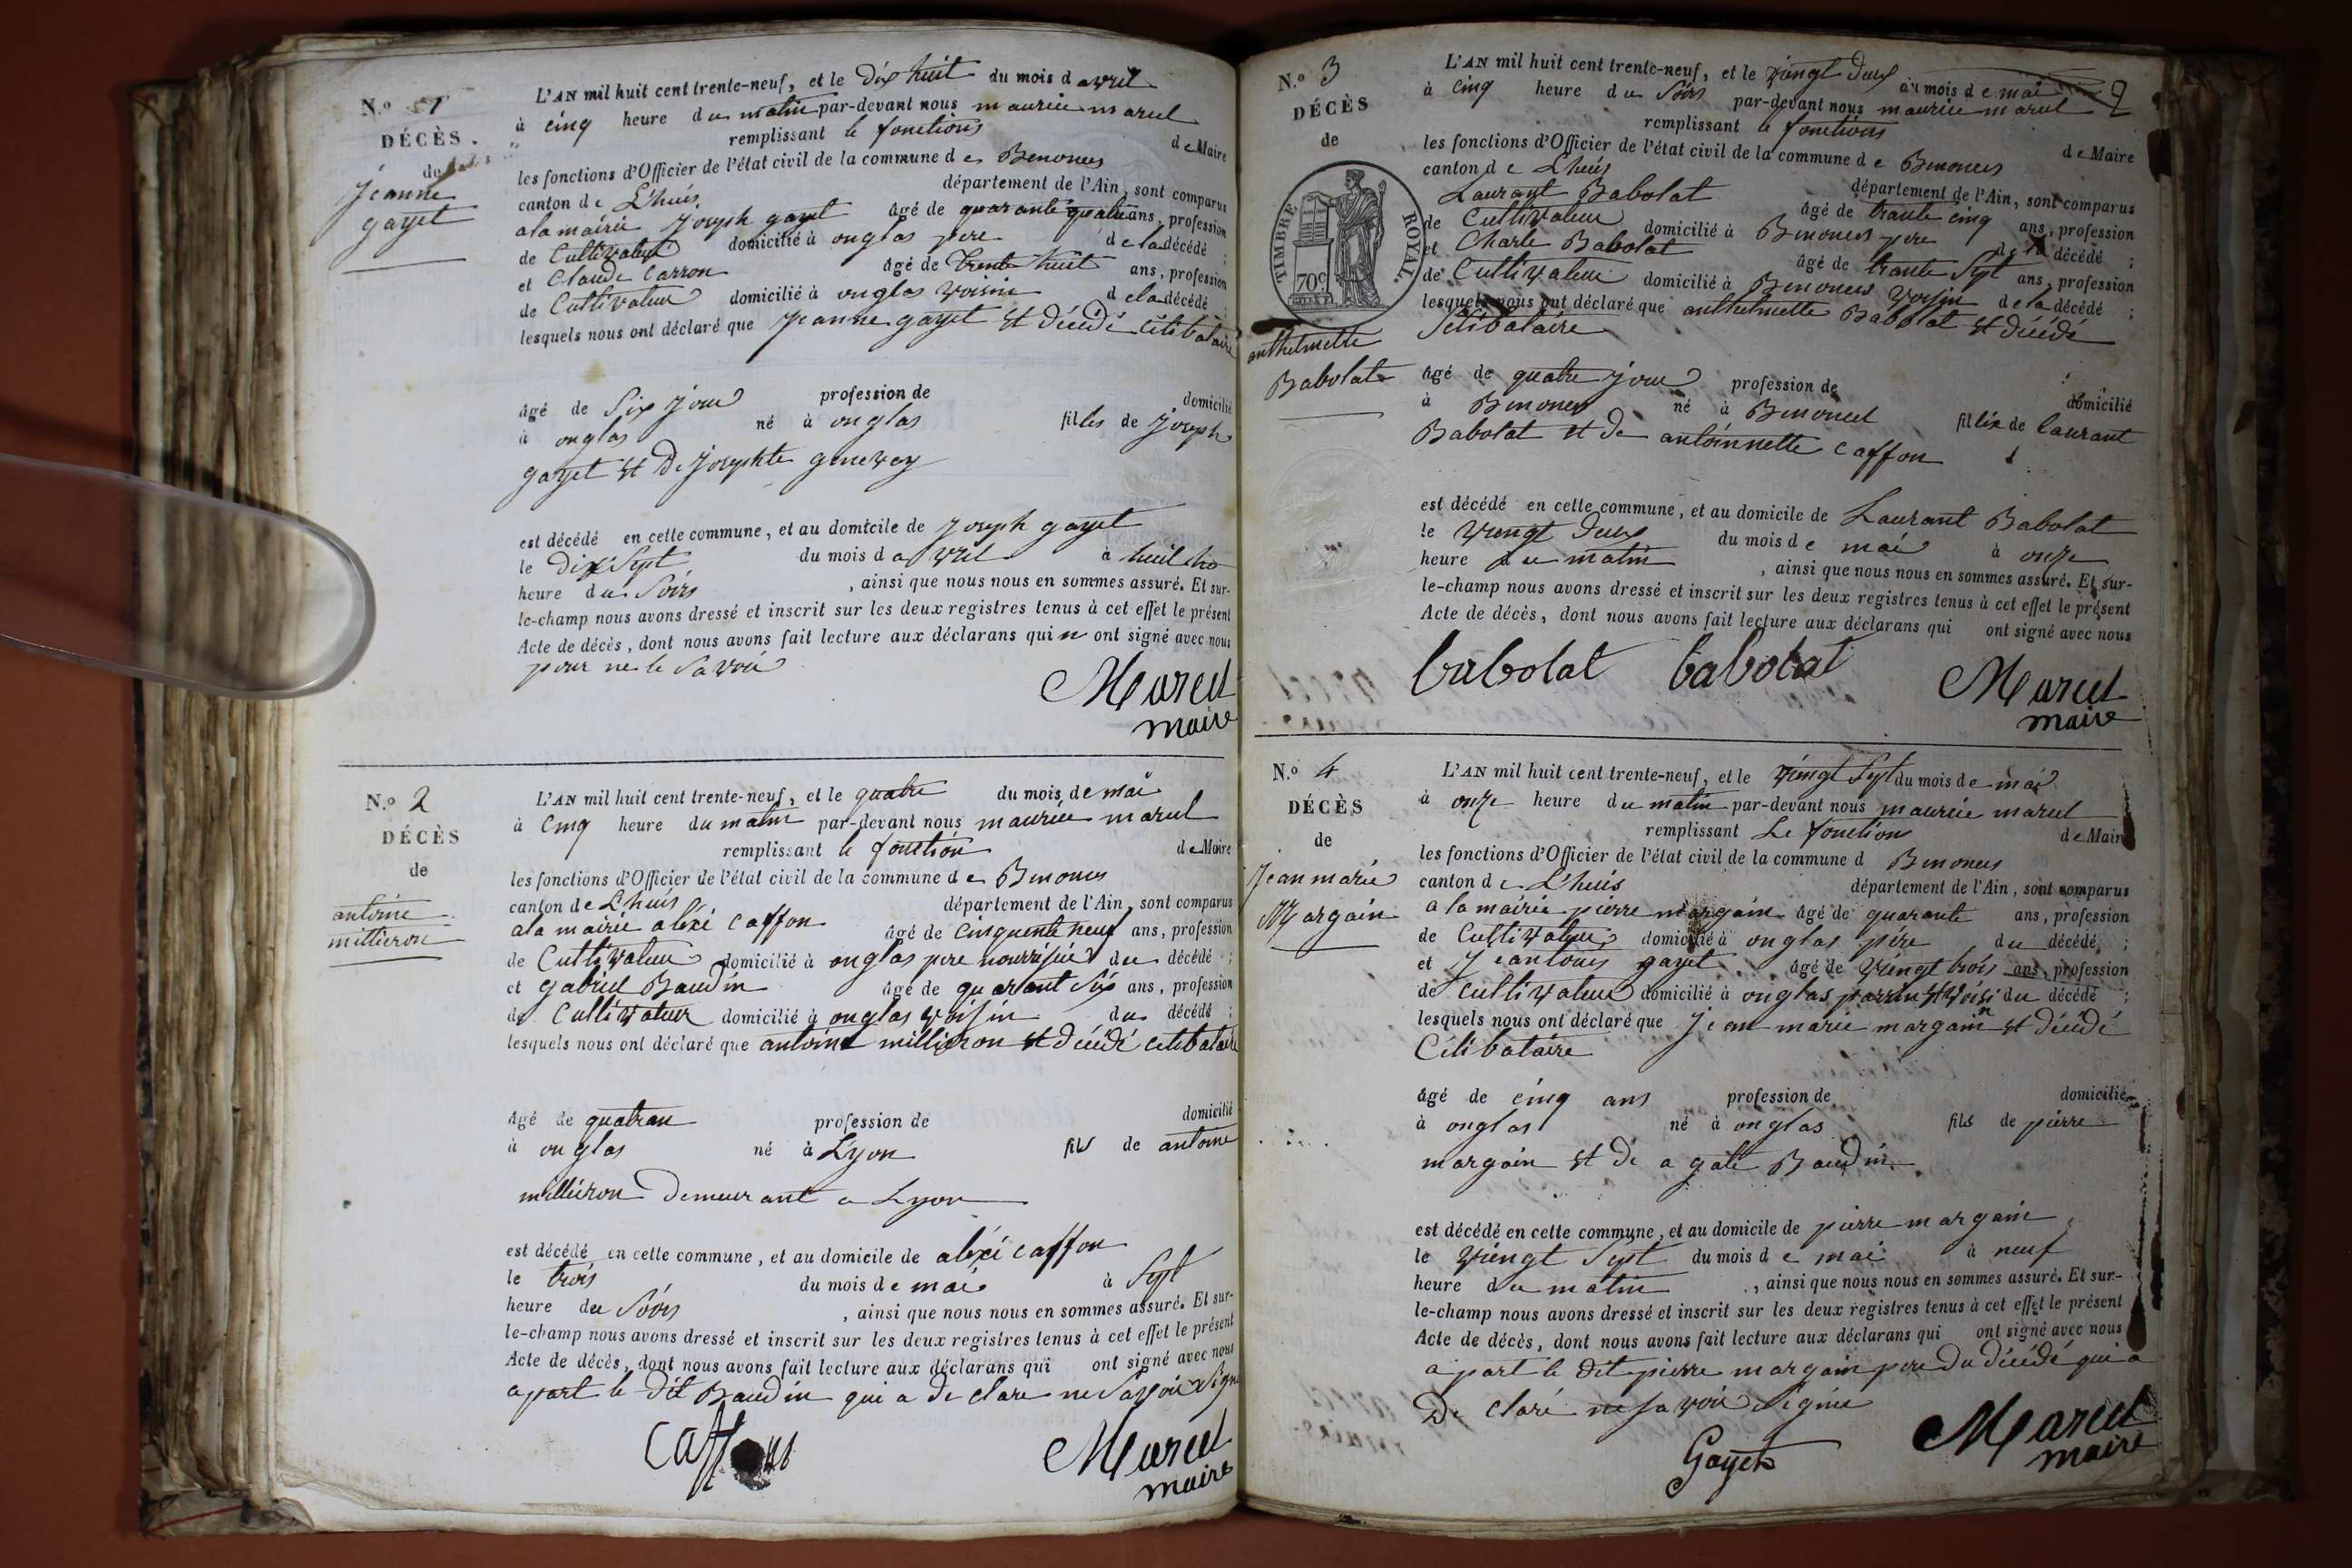 N.o 1
DÉCÈS.
de
Jeanne
gayet
L'AN mil huit cent trente-neuf, et le Dix huit du mois d avril
à cinq heure du matin par-devant nous maurice marcel
remplissant le fonctions de Maire
les fonctions d'Officier de l'état civil de la commune de Benonces
canton de L'huis département de l'Ain, sont comparus
a la mairie Joseph gayet âgé de quarante quatre ans, profession
de Cultivateur domicilié à onglas pere de la décédé ;
et Claude Carron âgé de trente huit ans, profession
de Cultivateur domicilié à onglas voisin de la décédé ;
lesquels nous ont déclaré que Jeanne gayet et décédé célibataire
âgé de Six jour profession de domicilié
à onglas né à onglas filles de Joseph
gayet et De Josephte genevey
est décédé en cette commune, et au domicile de Joseph gayet
le dix Sept du mois d avril à huit
heure du Soirs , ainsi que nous nous en sommes assuré. Et sur-
le-champ nous avons dressé et inscrit sur les deux registres tenus à cet effet le présent
Acte de décès, dont nous avons fait lecture aux déclarans qui n ont signé avec nous
pour ne le Savoir
Marcel
maire
N.o 2
DÉCÈS
de
antoine
millieron
L'AN mil huit cent trente-neuf, et le quatre du mois de mai
à cinq heure du matin par-devant nous maurice marcel
remplissant le fonction de Maire
les fonctions d'Officier de l'état civil de la commune de Benonces
canton de L'huis département de l'Ain, sont comparus
a la mairie aléxi Caffon âgé de Cinquente neuf ans, profession
de Cultivateur domicilié à onglas pere nourrisié du décédé ;
et gabriel Baudin âgé de quarant Six ans, profession
de Cultivateur domicilié à onglas voisin du décédé ;
lesquels nous ont déclaré que antoine millieron et décédé célibataire
âgé de quatran profession de domicilié
à onglas né à Lyon fils de antoine
millieron Demeurant a Lyon
est décédé en cette commune, et au domicile de aléxi caffon
le trois du mois de mai à Sept
heure du Soirs , ainsi que nous nous en sommes assuré. Et sur-
le-champ nous avons dressé et inscrit sur les deux registres tenus à cet effet le présent
Acte de décès, dont nous avons fait lecture aux déclarans qui ont signé avec nous
a part le dit Baudin qui a de clare ne Savoir Signe
Marcel
maire
2
N.o 3
DÉCÈS
de
TIMBRE ROYAL.
70c
anthelmette
Babolat
L'AN mil huit cent trente-neuf, et le vingt deux du mois de mai
à cinq heure du Soirs par-devant nous maurice marcel
remplissant le fonctions de Maire
les fonctions d'Officier de l'état civil de la commune de Benonces
canton de L'huis département de l'Ain, sont comparus
Laurant Babolat âgé de trante cinq ans, profession
de Cultivateur domicilié à Benonces pere de la décédé ;
et Charle Babolat âgé de trante Sept ans, profession
de Cultivateur domicilié à Benonces voisin de la décédé ;
lesquels nous ont déclaré que anthelmette Babolat et décédé
Sélibataire
âgé de quatre jour profession de domicilié
à Benonces né à Benonces fillix de laurant
Babolat et de antoinnette caffon
est décédé en cette commune, et au domicile de Laurant Babolat
le vingt deux du mois de mai à onze
heure du matin , ainsi que nous nous en sommes assuré. Et sur-
le-champ nous avons dressé et inscrit sur les deux registres tenus à cet effet le présent
Acte de décès, dont nous avons fait lecture aux déclarans qui ont signé avec nous
babolat babolat Marcel
maire
N.o 4
DÉCÈS
de
Jean marie
Margain
L'AN mil huit cent trente-neuf, et le vingt Sept du mois de mai
à onze heure du matin par-devant nous maurice marcel
remplissant Le fonction de Maire
les fonctions d'Officier de l'état civil de la commune d Benonces
canton de L'huis département de l'Ain, sont comparus
a la mairie pierre margain âgé de quarante ans, profession
de Cultivateur domicilié à onglas pére du décédé ;
et Jeanlouis gayet âgé de vingt trois ans, profession
de cultivateur domicilié à onglas parrin et voisin du décédé ;
lesquels nous ont déclaré que Jean marie margain et décédé
Célibataire
âgé de cinq ans profession de domicilié
à onglas né à onglas fils de pierre
margain et de agate Baudin
est décédé en cette commune, et au domicile de pierre margain
le vingt Sept du mois de mai à neuf
heure du matin , ainsi que nous nous en sommes assuré. Et sur-
le-champ nous avons dressé et inscrit sur les deux registres tenus à cet effet le présent
Acte de décès, dont nous avons fait lecture aux déclarans qui ont signé avec nous
a part le dit pierre margain pere du décédé qui a
De claré ne Savoir Signé
Gayet Marcel
maire